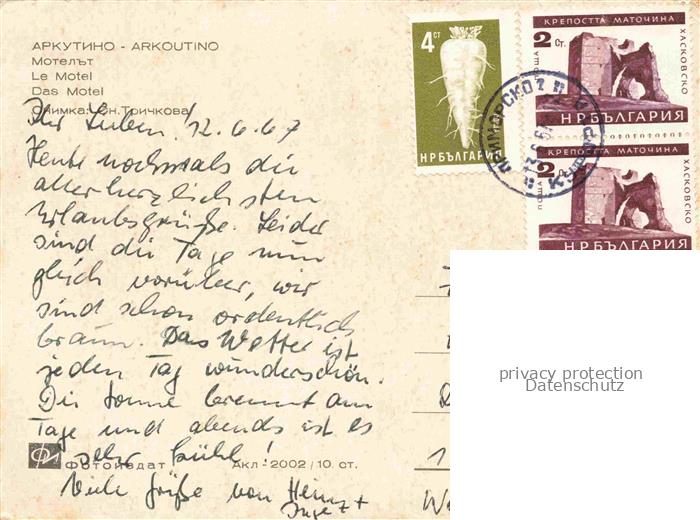 АРКУТИНО - ARKOUTINO
Мотелът
Le Motel
Das Motel
Снимка: Зн. Тричкова
4 СТ
НРБЪЛГАРИЯ
КРЕПОСТТА МАТОЧИНА
2 Ст.
ПОЩА
ХАСКОВСКО
НРБЪЛГАРИЯ
КРЕПОСТТА МАТОЧИНА
2 Ст.
ПОЩА
ХАСКОВСКО
НРБЪЛГАРИЯ
ПРИМОРСКО
Ihr Lieben! 12.6.67
Heute nochmals die
allerherzlichsten
Urlaubsgrüße. Leider
sind die Tage nun
gleich vorüber, wir
sind schon ordentlich
braun. Das Wetter ist
jeden Tag wunderschön.
Die Sonne brennt am
Tage und abends ist es
sehr kühl!
Viele Grüße von Heinz +
Inge
Фотоиздат Акл-2002/10 ст.
privacy protection
Datenschutz